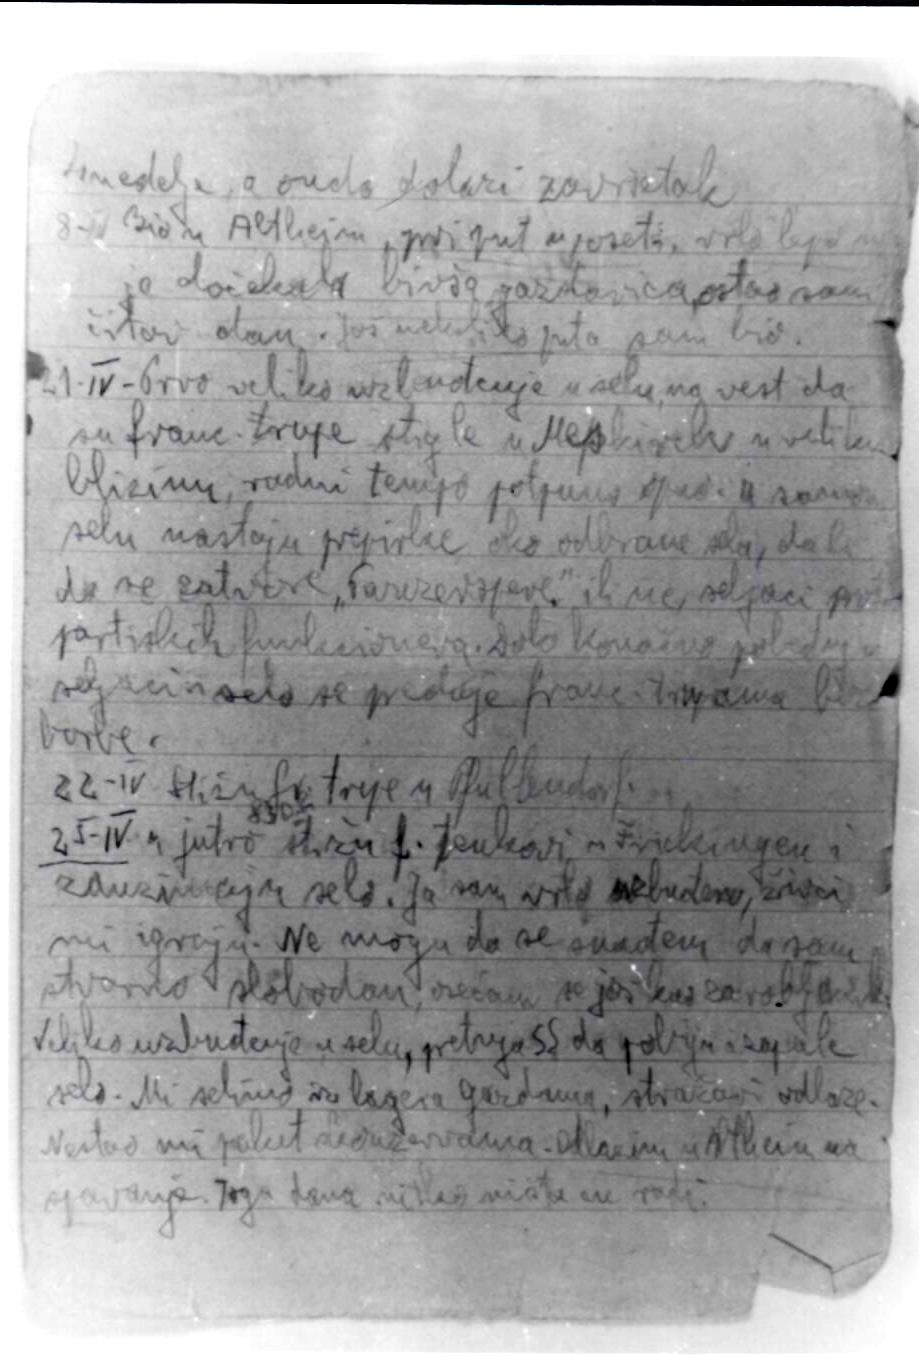 nedelje, a onda dolazi završetak
8-IV Bio u Altheim, prvi put u poseti, vrlo lepo
je dočekala bivša gazdarica, ostao sam
čitav dan. Još nekoliko puta sam bio.
21-IV-Prvo veliko uzbuđenje u selu, na vest da
su franc. trupe stigle u Meßkirch u veliku
blizinu, radni tempo potpuno opao. U samom
selu nastaju prepirke oko odbrane sela, da li
da se zatvore „Panzersperre" ili ne, seljaci
partiskih funkcionera. Konačno pobeđuju
seljaci i selo se predaje franc. trupama bez
borbe.
22-IV Stižu fr. trupe u Pfullendorf.
830
25-IV u jutro stižu f. tenkovi u Frickingen i
zauzimaju selo. Ja sam vrlo uzbuđen, živci
mi igraju. Ne mogu da se snađem da sam
stvarno slobodan, osećam se još kao zarobljenik.
Veliko uzbuđenje u selu, pretnja SS da pobiju i zapale
selo. Mi selimo iz lagera gazdama, stražari odlaze.
Nestao mi paket sa konzervama. Odlazim u Altheim na
spavanje. Toga dana nitko ništa ne radi.